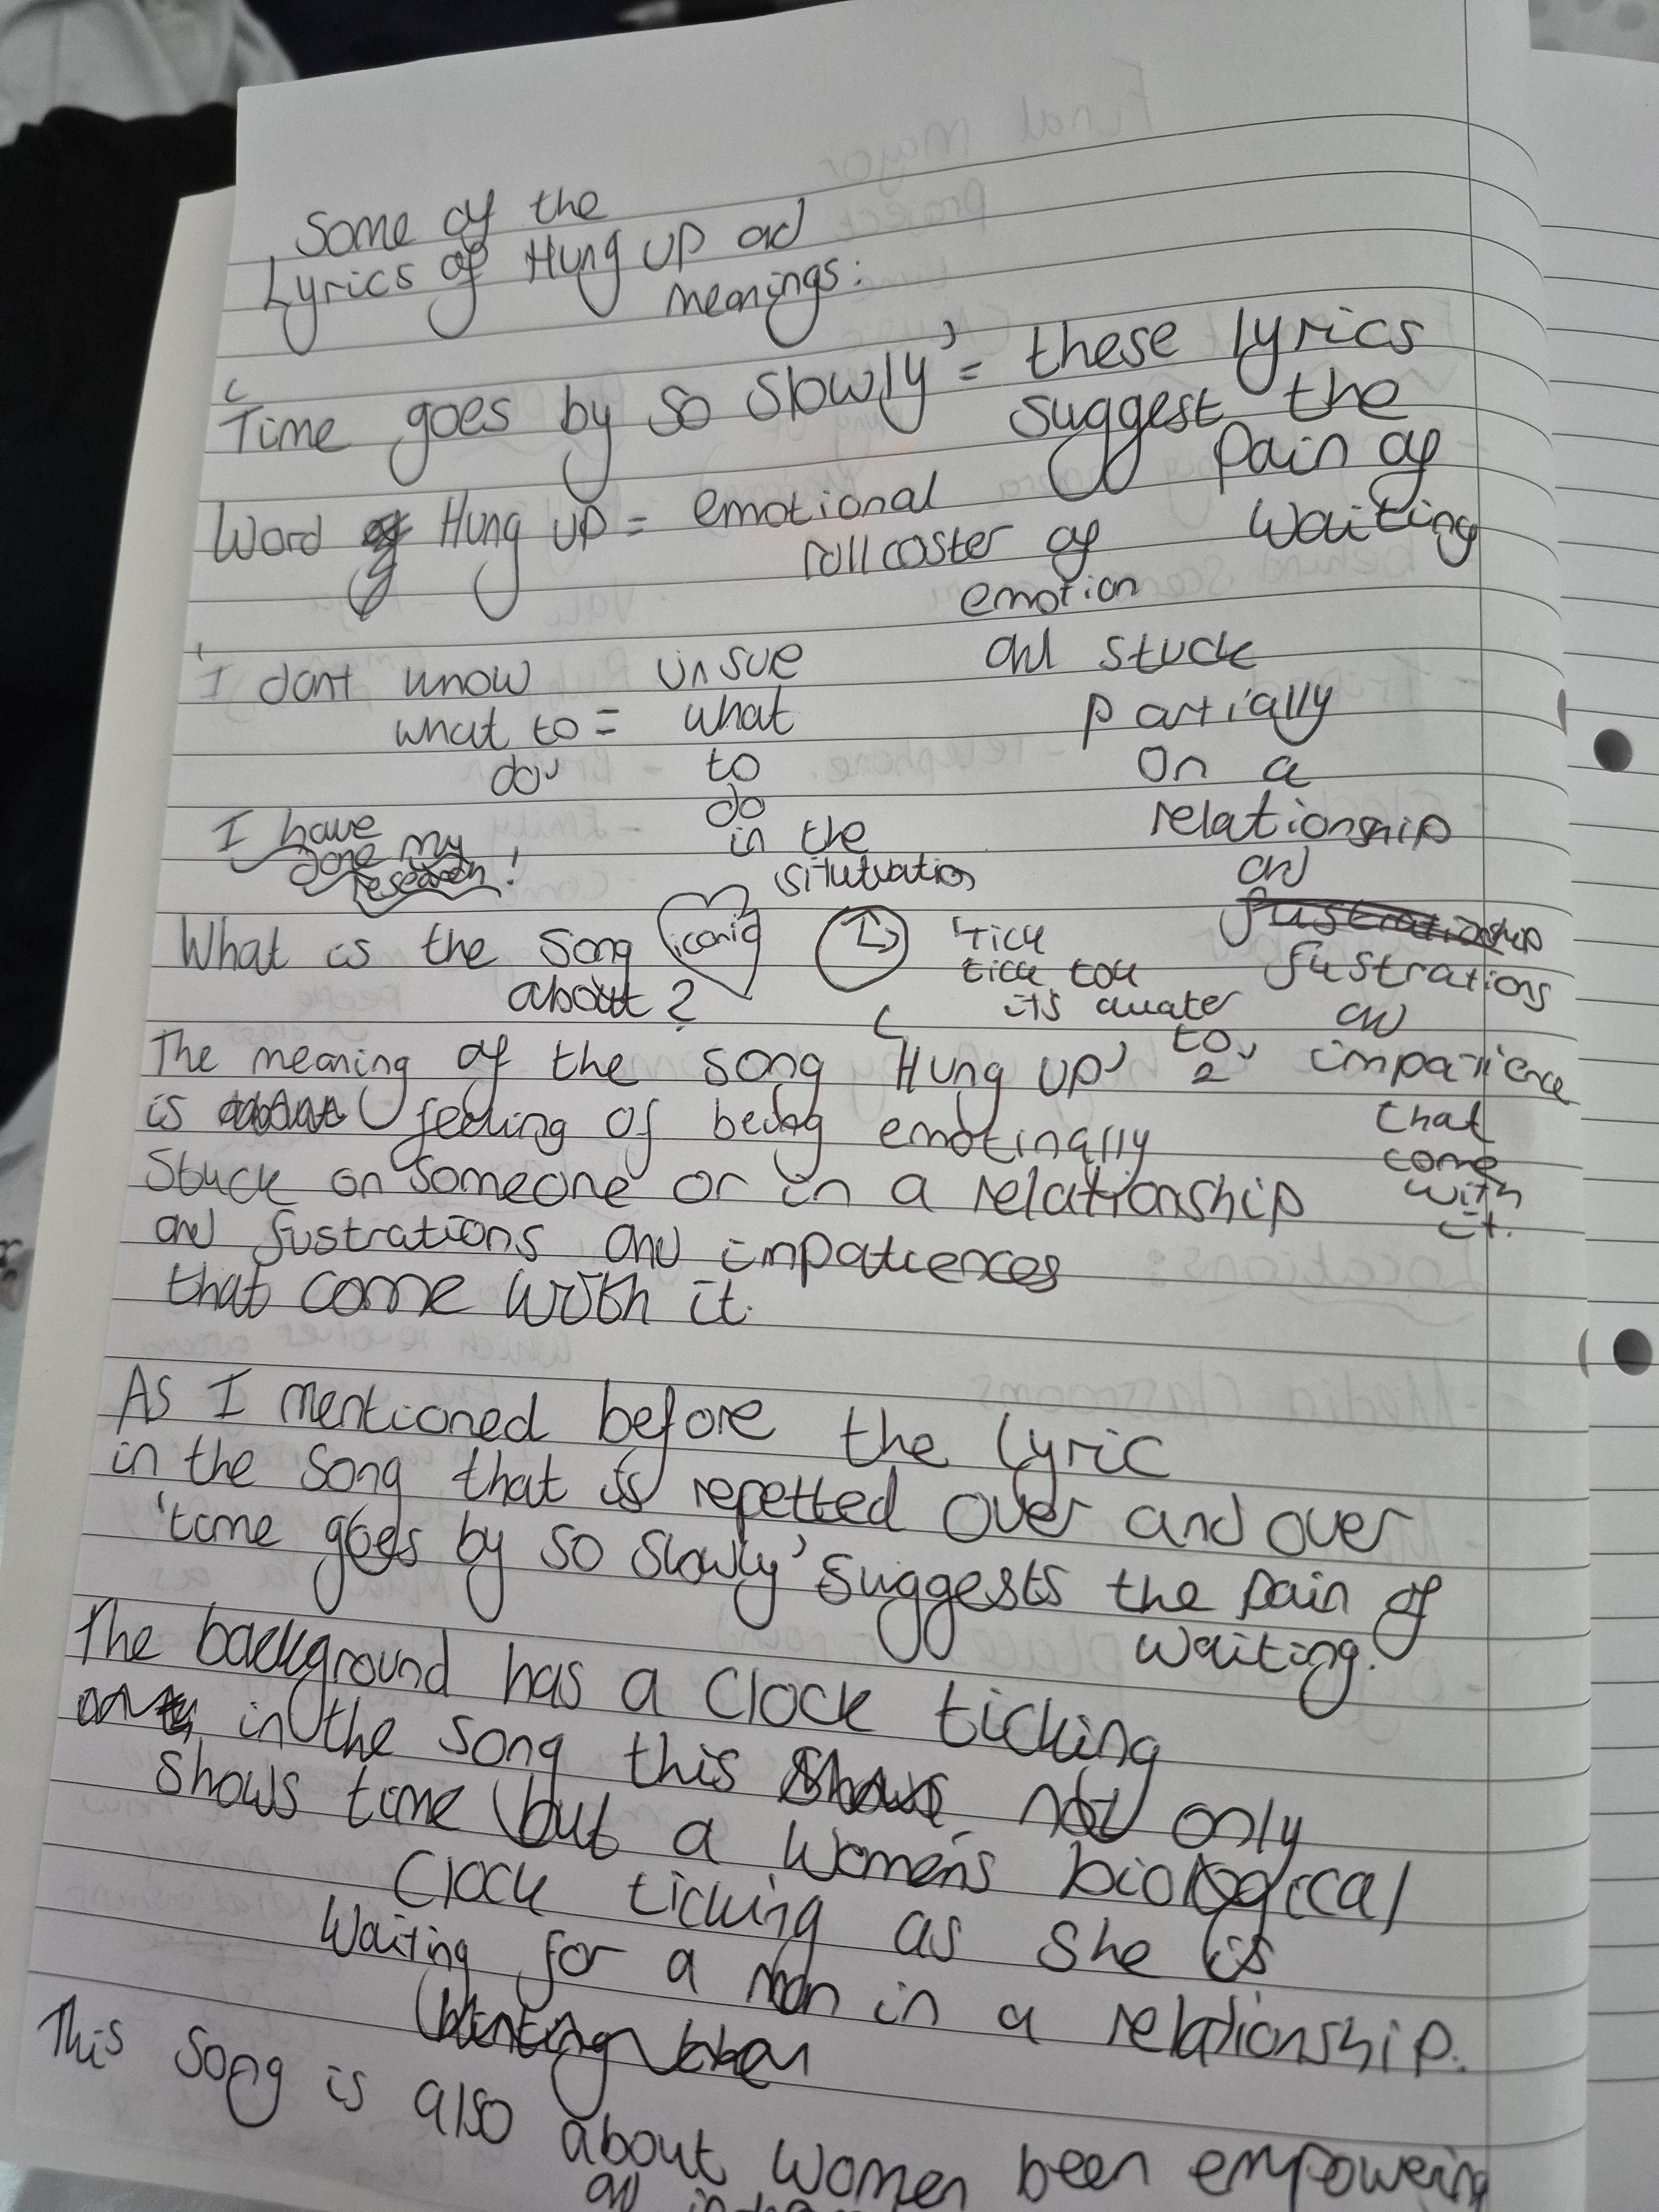 Some of the
Lyrics of Hung up ad
meanings:
'Time goes by so slowly' = these lyrics
suggest the
pain of
waiting
Word Hung up = emotional
rollcoster of
emotion
and stuck
partially
on a
relationship
and
fustrations
and
impatience
that
come
with
it.
'I dont know
what to =
do'
unsue
what
to
do
in the
situtuation
I have
done my
research!
What is the song
about?
iconic
'tick
tick tok
its quater
to
2'
The meaning of the song 'Hung up'
is feeling of being emotinally
stuck on someone or in a relationship
and fustrations and impatiences
that come with it.
As I mentioned before the lyric
in the song that is repetted over and over
'time goes by so slowly' suggests the pain of
waiting.
The background has a clock ticking
in the song this not only
shows time but a women's biological
clock ticking as she is
waiting for a man in a relationship.
This song is also about women been empowering